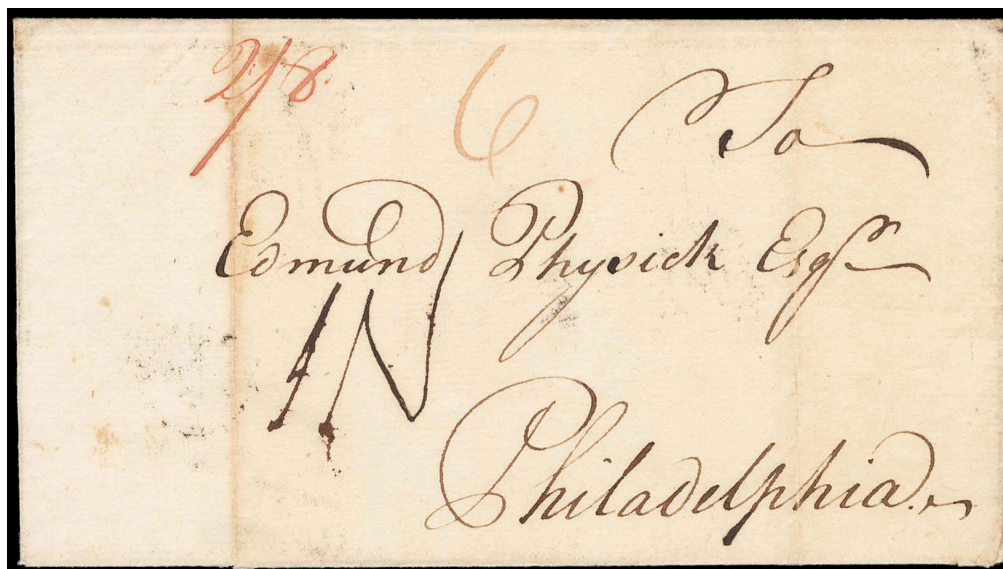 2/8 6
To
Edmund Physick Esqr
1N
Philadelphia.